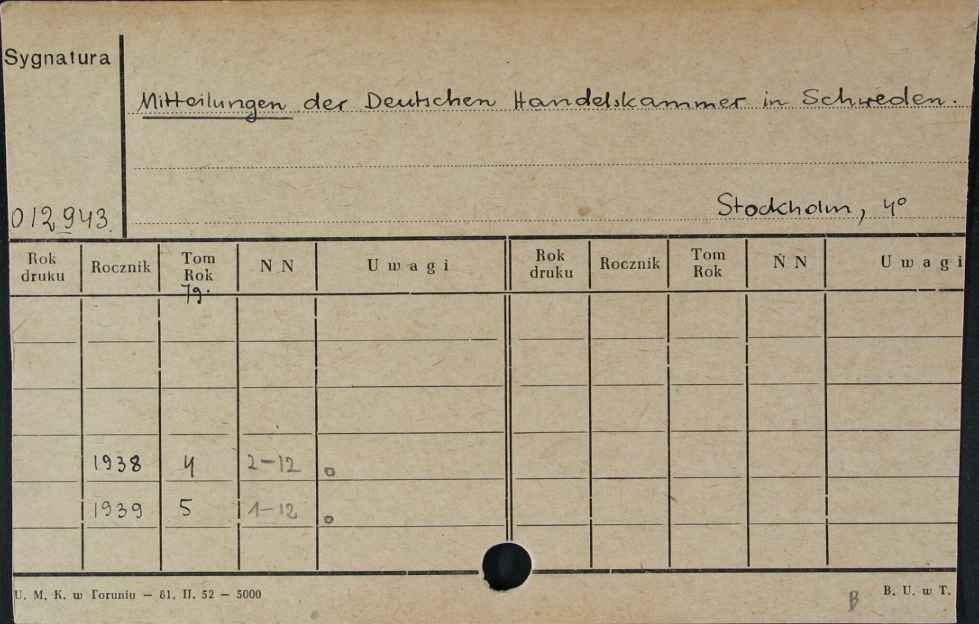 Sygnatura
Mitteilungen der Deutschen Handelskammer in Schweden.
012943
Stockholm, 4°
Rok druku Rocznik Tom Rok N N Uwagi Rok druku Rocznik Tom Rok N N Uwagi
Jg.
1938 4 2-12 o
1939 5 1-12 o
U. M. K. w Toruniu — 61. II. 52 — 5000
B B. U. w T.